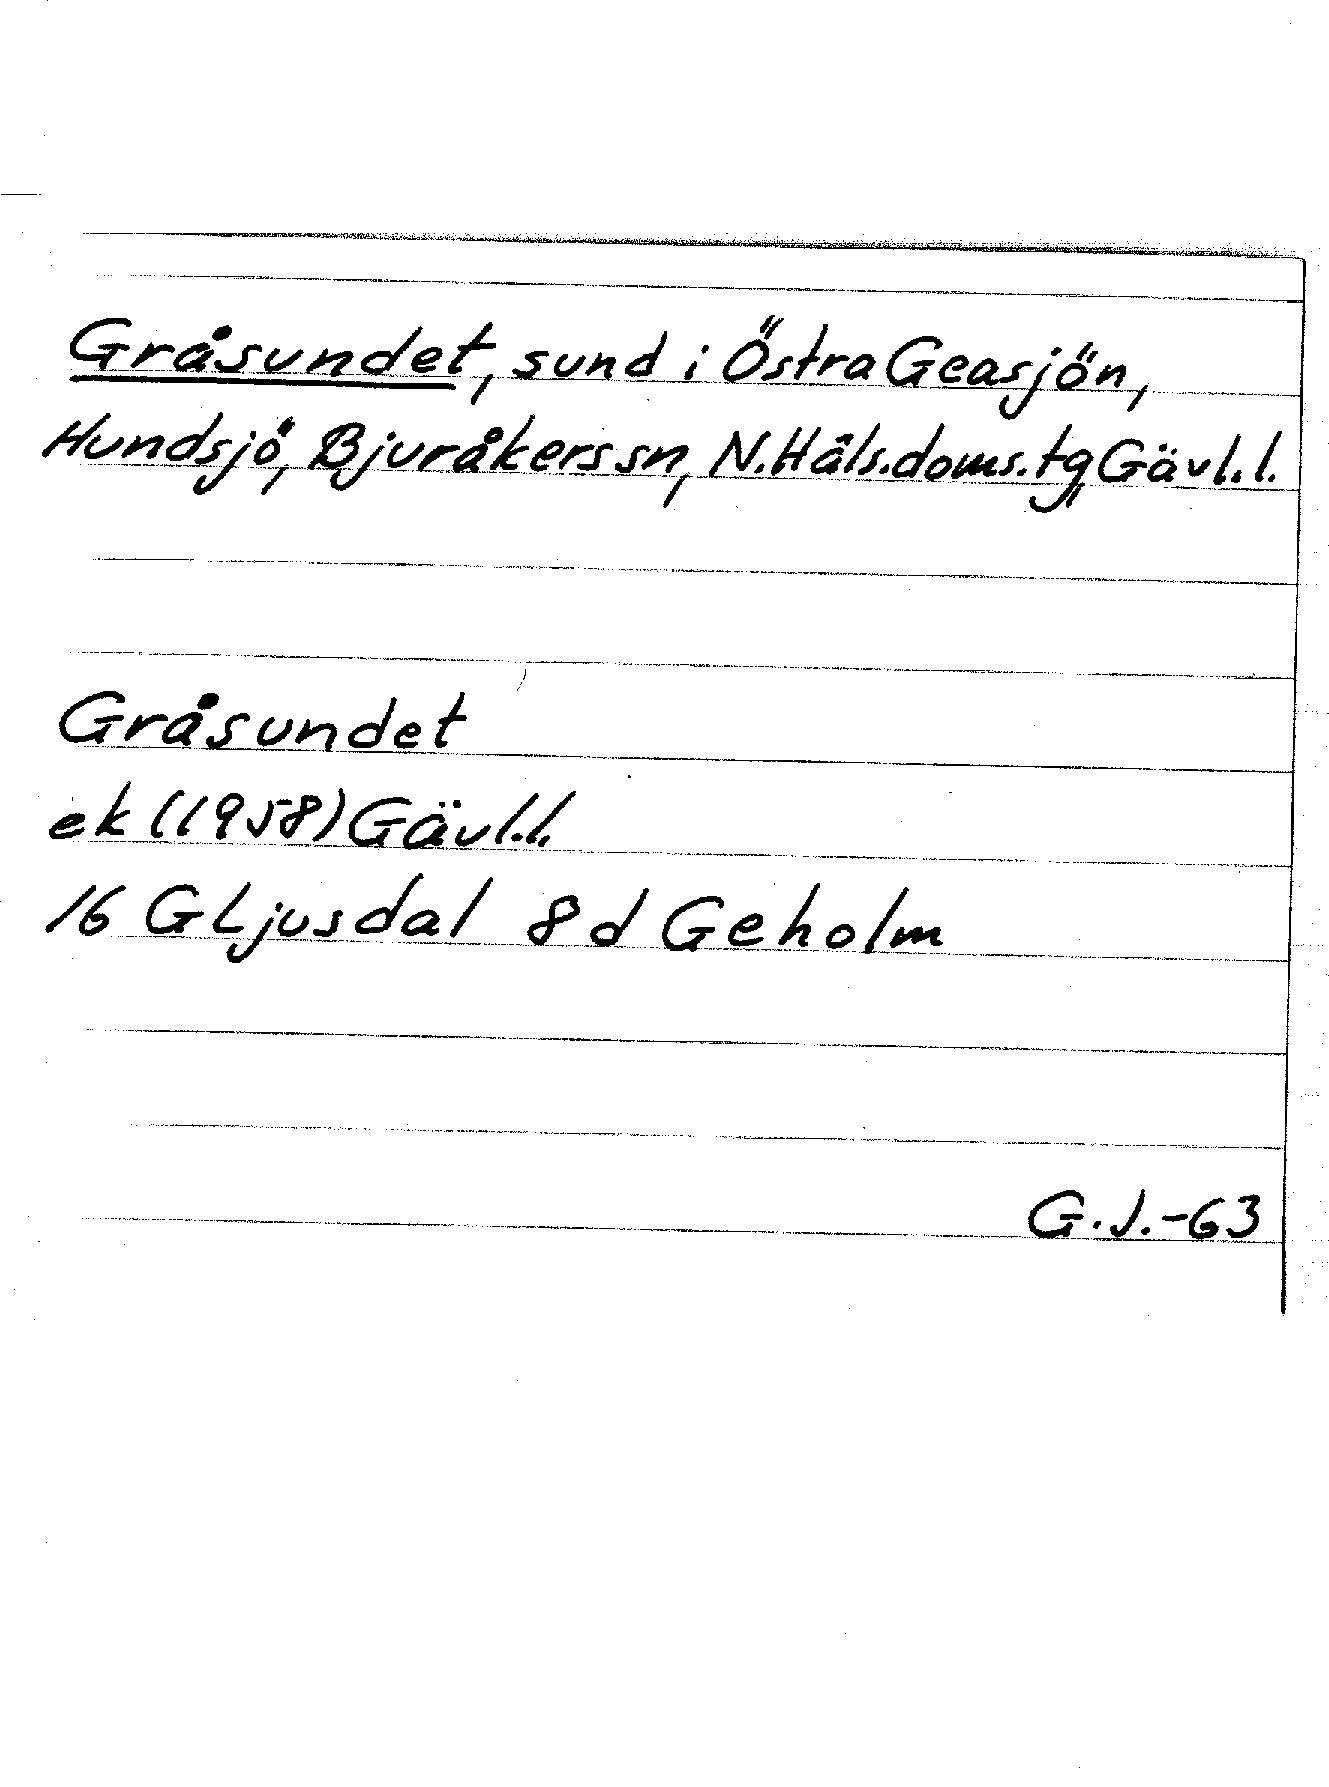 Gråsundet, sund i Östra Geasjön,
Hundsjö, Bjuråkers sn, N.Häls.doms.tg, Gävl.l.
Gråsundet
ek (1958) Gävl.l.
16 G Ljusdal 8 d Geholm
G.J.-63